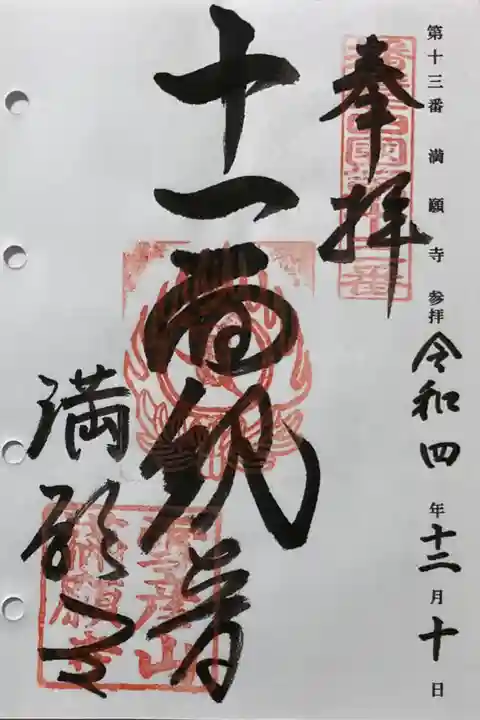 第十三番 満願寺 参拝 令和四年十二月十日
奉拝
十一面観音
満願寺